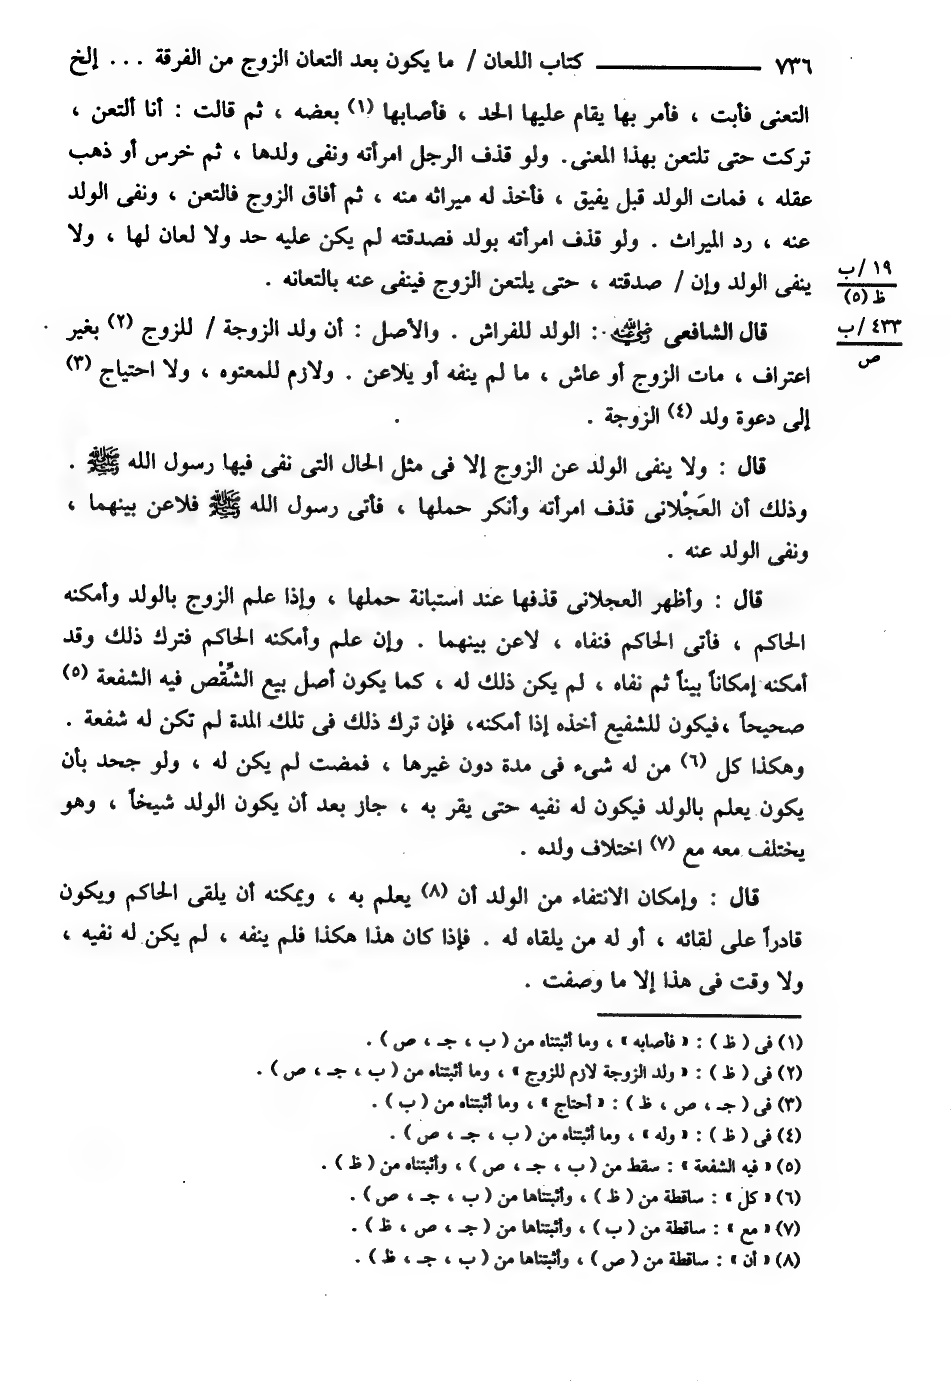 ٧٣٦ ــــــــــــ كتاب اللعان / ما يكون بعد التعان الزوج من الفرقة ... إلخ
التعنى فأبت ، فأمر بها يقام عليها الحد ، فأصابها (١) بعضه ، ثم قالت : أنا ألتعن ،
تركت حتى تلتعن بهذا المعنى. ولو قذف الرجل امرأته ونفى ولدها ، ثم خرس أو ذهب
عقله ، فمات الولد قبل يفيق ، فأخذ له ميراثه منه ، ثم أفاق الزوج فالتعن ، ونفى الولد
عنه ، رد الميراث . ولو قذف امرأته بولد فصدقته لم يكن عليه حد ولا لعان لها ، ولا
ينفى الولد وإن / صدقته ، حتى يلتعن الزوج فينفى عنه بالتعانه .
١٩ /ب
ظ (٥)
قال الشافعى رضي الله عنه : الولد للفراش . والأصل : أن ولد الزوجة / للزوج (٢) بغير
٤٣٣ /ب
ص
اعتراف ، مات الزوج أو عاش ، ما لم ينفه أو يلاعن . ولازم للمعتوه ، ولا احتياج (٣)
إلى دعوة ولد (٤) الزوجة .
قال : ولا ينفى الولد عن الزوج إلا فى مثل الحال التى نفى فيها رسول الله ﷺ .
وذلك أن العَجْلانى قذف امرأته وأنكر حملها ، فأتى رسول الله ﷺ فلاعن بينهما ،
ونفى الولد عنه .
قال : وأظهر العجلانى قذفها عند استبانة حملها ، وإذا علم الزوج بالولد وأمكنه
الحاكم ، فأتى الحاكم فنفاه ، لاعن بينهما . وإن علم وأمكنه الحاكم فترك ذلك وقد
أمكنه إمكاناً بيناً ثم نفاه ، لم يكن ذلك له ، كما يكون أصل بيع الشِّقْص فيه الشفعة (٥)
صحيحاً ،فيكون للشفيع أخذه إذا أمكنه، فإن ترك ذلك فى تلك المدة لم تكن له شفعة .
وهكذا كل (٦) من له شىء فى مدة دون غيرها ، فمضت لم يكن له ، ولو جحد بأن
يكون يعلم بالولد فيكون له نفيه حتى يقر به ، جاز بعد أن يكون الولد شيخاً ، وهو
يختلف معه مع (٧) اختلاف ولده .
قال : وإمكان الانتفاء من الولد أن (٨) يعلم به ، ويمكنه أن يلقى الحاكم ويكون
قادراً على لقائه ، أو له من يلقاه له . فإذا كان هذا هكذا فلم ينفه ، لم يكن له نفيه ،
ولا وقت فى هذا إلا ما وصفت .
(١) فى ( ظ ) : « فأصابه » ، وما أثبتناه من ( ب ، جـ ، ص ) .
(٢) فى ( ظ ) : « ولد الزوجة لازم للزوج » ، وما أثبتناه من ( ب ، جـ ، ص ) .
(٣) فى ( جـ ، ص ، ظ ) : « أحتاج » ، وما أثبتناه من ( ب ) .
(٤) فى ( ظ ) : « وله » ، وما أثبتناه من ( ب ، جـ ، ص ) .
(٥) « فيه الشفعة » : سقط من ( ب ، جـ ، ص ) ، وأثبتناه من ( ظ ) .
(٦) « كل » : ساقطة من ( ظ ) ، وأثبتناها من ( ب ، جـ ، ص ) .
(٧) « مع » : ساقطة من ( ب ) ، وأثبتناها من ( جـ ، ص ، ظ ) .
(٨) « أن » : ساقطة من ( ص ) ، وأثبتناها من ( ب ، جـ ، ظ ) .